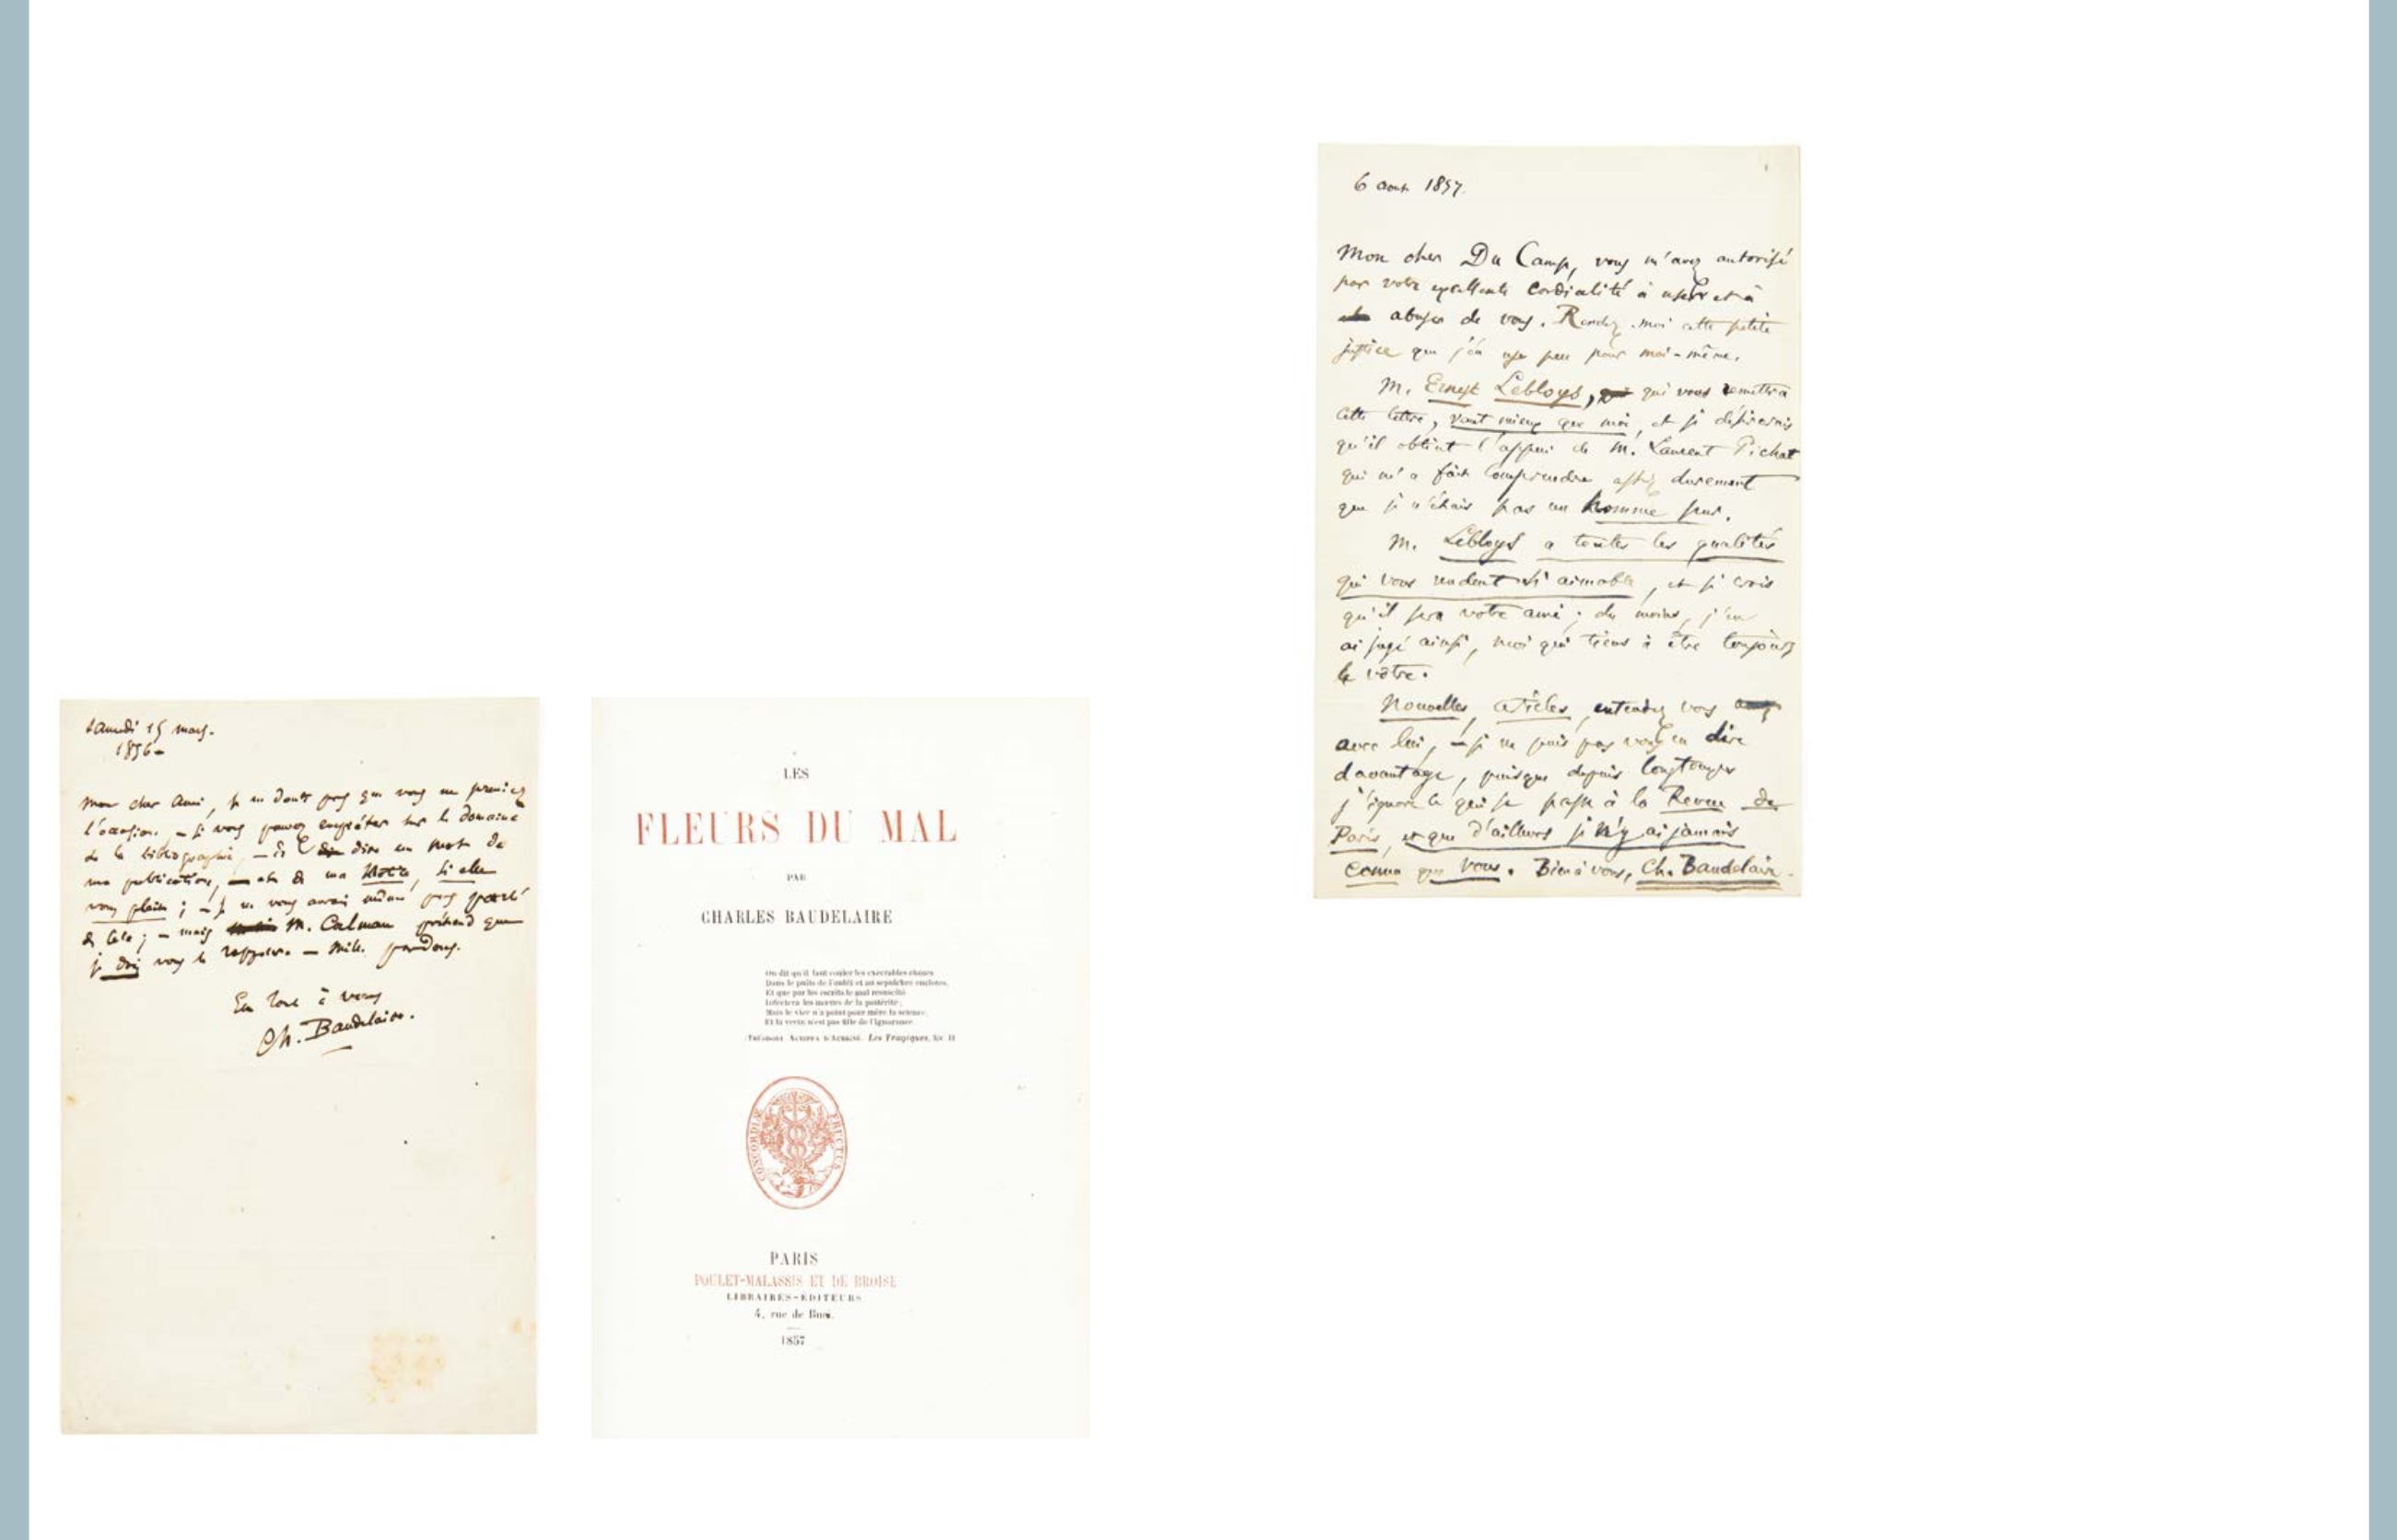 Samedi 15 mars.
1856 –
Mon cher Ami, je ne doute pas que vous ne preniez
l'occasion, – si vous pouvez empiéter sur le domaine
de la bibliographie, – de dire un mot de
ma publication, – et de ma Notice, si elle
vous plait ; – je ne vous aurais même pas parlé
de cela ; – mais M. Calman prétend que
je dois vous le rappeler. – Mille pardons.
Tout à vous
Ch. Baudelaire.
LES
FLEURS DU MAL
PAR
CHARLES BAUDELAIRE
On dit qu'il faut couler les exécrables choses
Dans le puits de l'oubli et au sepulchre encloses,
Et que par les escrits le mal resuscité
Infectera les mœurs de la postérité ;
Mais le vice n'a point pour mère la science,
Et la vertu n'est pas fille de l'ignorance.
(THÉODORE AGRIPPA D'AUBIGNÉ. Les Tragiques, liv. II
CONCORDIÆ FRUCTUS
PARIS
POULET-MALASSIS ET DE BROISE
LIBRAIRES-ÉDITEURS
4, rue de Buci.
1857
6 aout 1857.
Mon cher Du Camp, vous m'avez autorisé
par votre excellente cordialité à user et à
abuser de vous. Rendez-moi cette petite
justice que j'en use peu pour moi-même.
M. Ernest Lebloys, qui vous remettra
cette lettre, vaut mieux que moi, et je désirerais
qu'il obtint l'appui de M. Laurent Pichat
qui m'a fait comprendre assez durement
que je n'étais pas un homme pur.
M. Lebloys a toutes les qualités
qui vous rendent si aimable, et je crois
qu'il sera votre ami ; du moins, j'en
ai jugé ainsi, moi qui tiens à être toujours
le vôtre.
Nouvelles, articles, entendez vous
avec lui, – je ne puis pas vous en dire
davantage, puisque depuis longtemps
j'ignore ce qui se passe à la Revue de
Paris, et que d'ailleurs je n'y ai jamais
connu que vous. Bien à vous, Ch. Baudelaire.